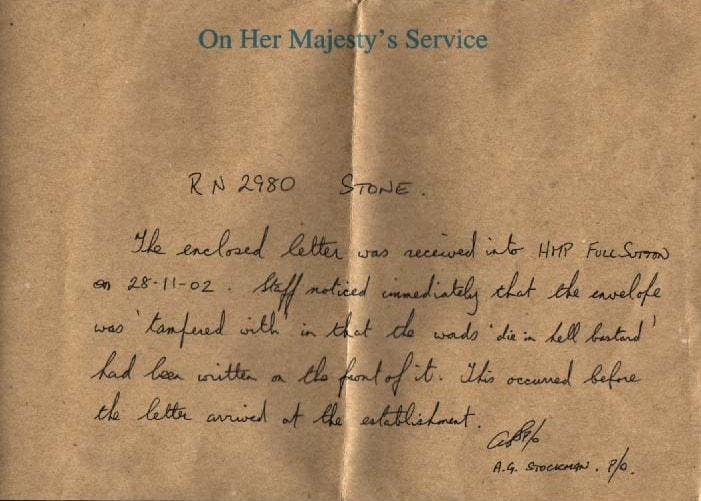 On Her Majesty's Service
RN 2980 STONE.
The enclosed letter was received into HMP FULL SUTTON
on 28-11-02. Staff noticed immediately that the envelope
was 'tampered with' in that the words 'die in hell bastard'
had been written on the front of it. This occured before
the letter arrived at the establishment.
P/O
A.G. STOCKMAN. P/O.